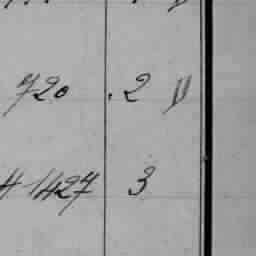 720 . 2 V
H 1427 3